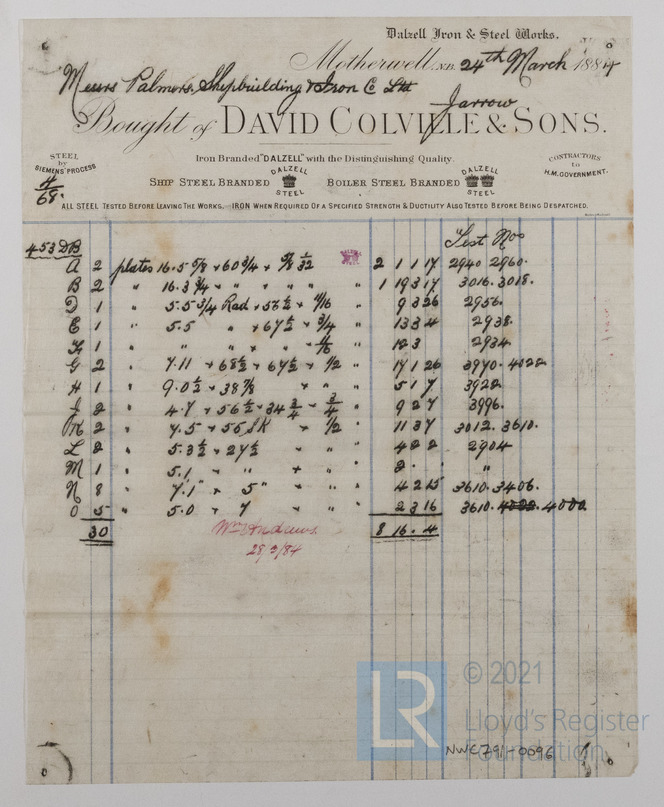 Dalzell Iron & Steel Works.
Motherwell, N.B. 24th March 1884
Messrs Palmers Shipbuilding & Iron Co Ltd
Jarrow
Bought of DAVID COLVILLE & SONS.
STEEL by SIEMENS' PROCESS
Iron Branded "DALZELL" with the Distinguishing Quality.
CONTRACTORS to H.M. GOVERNMENT.
SHIP STEEL BRANDED DALZELL STEEL BOILER STEEL BRANDED DALZELL STEEL
4/68.
ALL STEEL TESTED BEFORE LEAVING THE WORKS. IRON WHEN REQUIRED OF A SPECIFIED STRENGTH & DUCTILITY ALSO TESTED BEFORE BEING DESPATCHED.
Test Nos
453 DB
A 2 plates 16.5 5/8 × 60 3/4 × 2 1 1 17 2940 2960.
B 2 " 16.3 3/4 × " " " " 1 19 3 17 3016. 3018.
D 1 " 5.5 3/4 Rad × 56 1/2 × 11/16 " 9 3 26 2956.
E 1 " 5.5 " × 67 1/2 × 3/4 " 13 3 4 2938.
1 " " " × " × " 12 3 2934.
G 2 " 7.11 × 68 1/2 × 67 1/2 × 1/2 " 17 1 26 3970. 4022.
H 1 " 9.0 1/2 × 38 7/8 × " " 5 1 7 3922.
J 2 " 4.7 × 56 1/2 × 34 3/4 × 3/4 " 9 2 7 3996.
K 2 " 7.5 × 55 SK × 1/2 " 11 3 7 3012. 3610.
L 2 " 5.3 1/2 × 27 1/2 × " " 4 2 2 2904
M 1 " 5.1 × " × " " 2. "
N 8 " 7.1 " × 5 " × " " 4 2 15 3610. 3406.
O 5 " 5.0 × 7 × " " 2 3 16 3610. 4022. 4000.
30 8 16. 4
Wm Andrews
28/3/84
© 2021
LR Lloyd's Register
Foundation
NWC791-0096